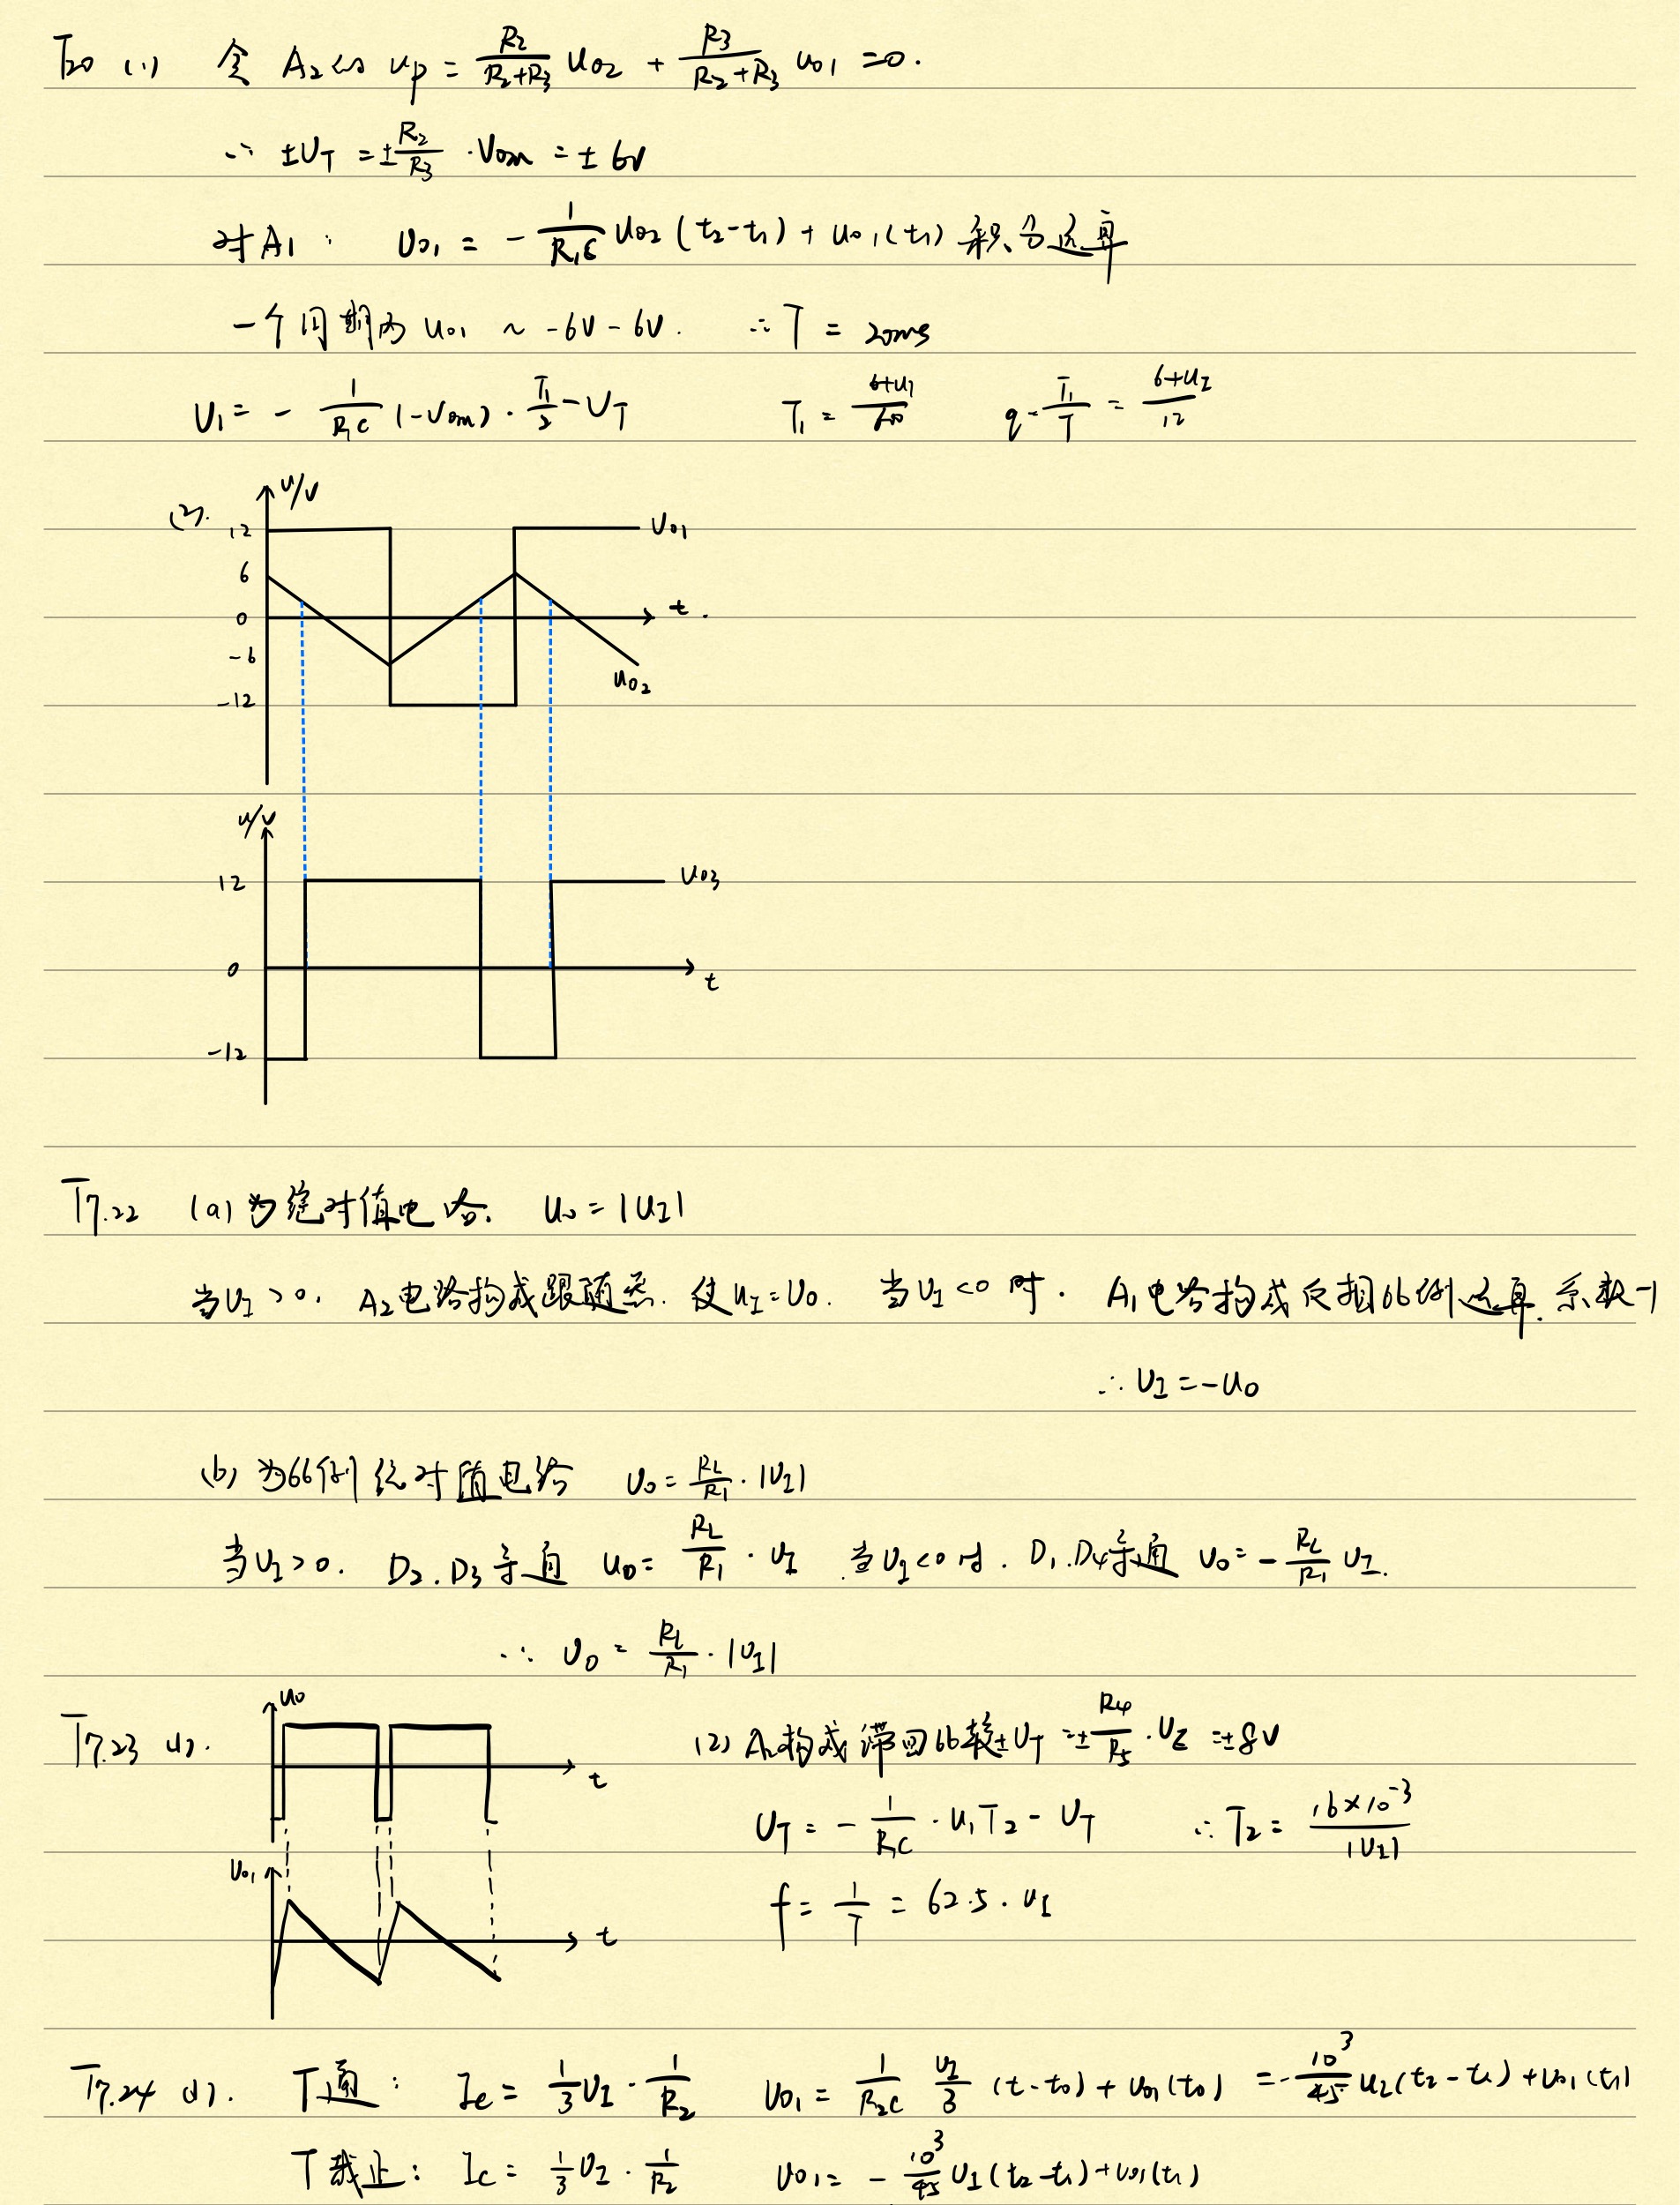 T20 (1) 令 A₂的 uP = R₂/(R₂+R₃) u₀₂ + R₃/(R₂+R₃) u₀₁ = 0.
∴ ±U_T = ±R₂/R₃ · Vom = ± 6V
对A₁: U₀₁ = - 1/(R₁C) u₀₂ (t₂-t₁) + u₀₁(t₁) 积分运算
一个周期内 u₀₁ ~ -6V - 6V. ∴ T = 20ms
U₁ = - 1/(R₁C) (-Vom) · T₁/2 - U_T T₁ = (6+u₁)/600 q = T₁/T = (6+u_I)/12
(2).
u/V
12
6
0
-6
-12
U₀₁
t
u₀₂
u/V
12
0
-12
u₀₃
t
T7.22 (a) 为绝对值电路. u₀ = |u_I|
当U_I>0, A₂电路构成跟随器. 使u_I=U₀. 当U_I<0时. A₁电路构成反相比例运算. 系数-1
∴ U_I = -u₀
(b) 为比例绝对值电路 U₀ = R_L/R₁ · |U_I|
当U_I>0. D₂.D₃导通 u₀ = R_L/R₁ · U_I 当U_I<0时. D₁.D₄导通 U₀ = - R_L/R₁ U_I.
∴ U₀ = R_L/R₁ · |U_I|
T7.23 (1).
u₀
t
U₀₁
t
(2) A₂构成滞回比较 ±U_T = ± R₄/R₅ · U_Z = ±8V
U_T = - 1/(R₁C) · u₁T₂ - U_T ∴ T₂ = 16×10⁻³/|U_I|
f = 1/T = 62.5 · u_I
T7.24 (1). T通: Ic = 1/3 U_I · 1/R₂ U₀₁ = 1/(R₂C) U_I/3 (t-t₀) + U₀₁(t₀) = - 10³/45 u_I(t₂-t₁) + U₀₁(t₁)
T截止: Ic = 1/3 U_I · 1/R₂ U₀₁ = - 10³/45 U_I(t₂-t₁) + U₀₁(t₁)